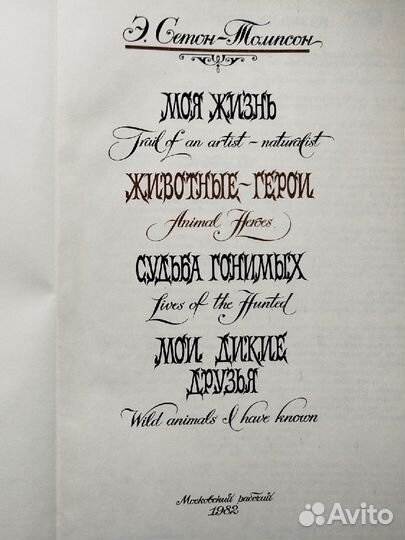 Э. Сетон-Томпсон
МОЯ ЖИЗНЬ
Trail of an artist-naturalist
ЖИВОТНЫЕ-ГЕРОИ
Animal Heroes
СУДЬБА ГОНИМЫХ
Lives of the Hunted
МОИ ДИКИЕ
ДРУЗЬЯ
Wild animals I have known
Московский рабочий
1982
Avito